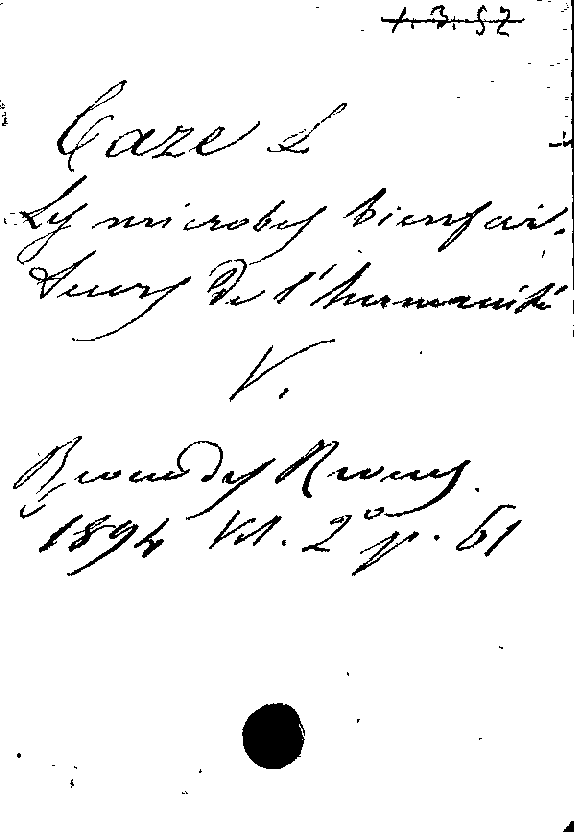 1.3.52
Caze L
Les microbes bienfai-
teurs de l'humanité
V.
Revue des Revues.
1894 Vol. 2º p. 51